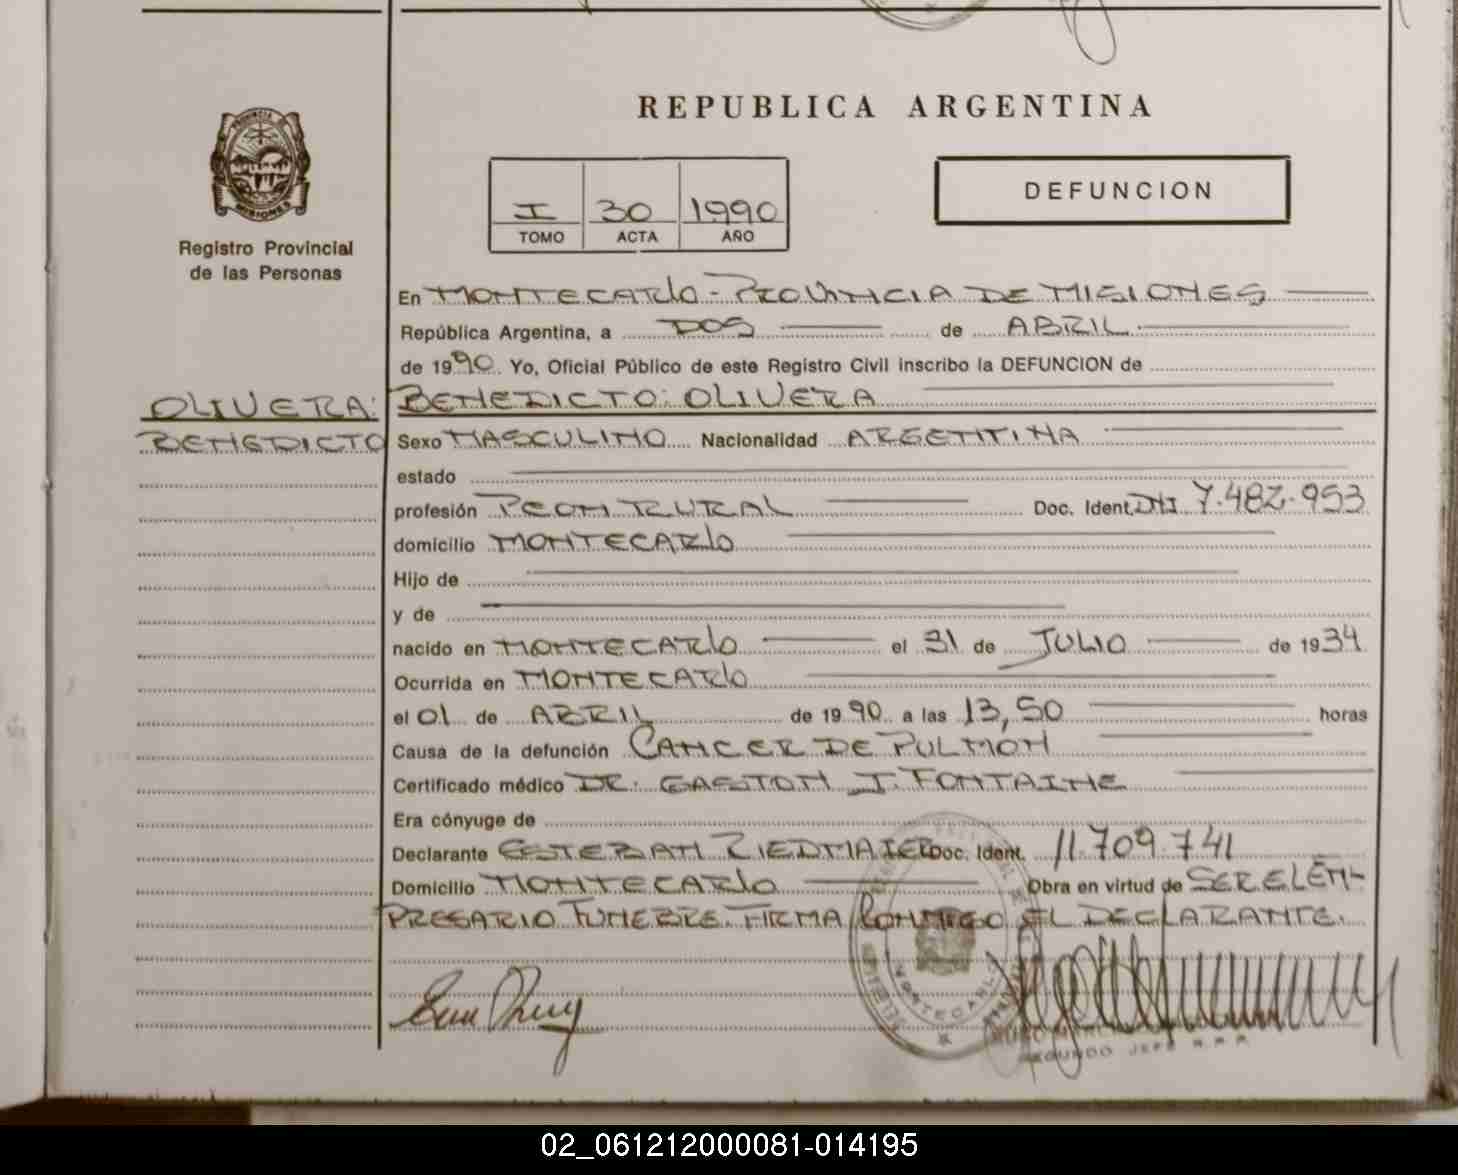 REPUBLICA ARGENTINA
PROVINCIA DE
MISIONES
DEFUNCION
I 30 1990
TOMO ACTA AÑO
Registro Provincial
de las Personas
En MONTECARLO - PROVINCIA DE MISIONES
República Argentina, a DOS de ABRIL
de 1990. Yo, Oficial Público de este Registro Civil inscribo la DEFUNCION de
OLIVERA: BENEDICTO: OLIVERA
BENEDICTO Sexo MASCULINO Nacionalidad ARGENTINA
estado
profesión PEON RURAL Doc. Ident. DNI 7.482.953
domicilio MONTECARLO
Hijo de
y de
nacido en MONTECARLO el 31 de JULIO de 1934
Ocurrida en MONTECARLO
el 01 de ABRIL de 1990 a las 13,50 horas
Causa de la defunción CANCER DE PULMON
Certificado médico DR. GASTON J. FONTAINE
Era cónyuge de
Declarante ESTEBAN RIEDMAIER Doc. Ident. 11.709.741
Domicilio MONTECARLO Obra en virtud de SER EL EM-
PRESARIO FUNEBRE. FIRMA CONMIGO EL DECLARANTE.
MONTECARLO
SEGUNDO JEFE R.P.P.
02_061212000081-014195